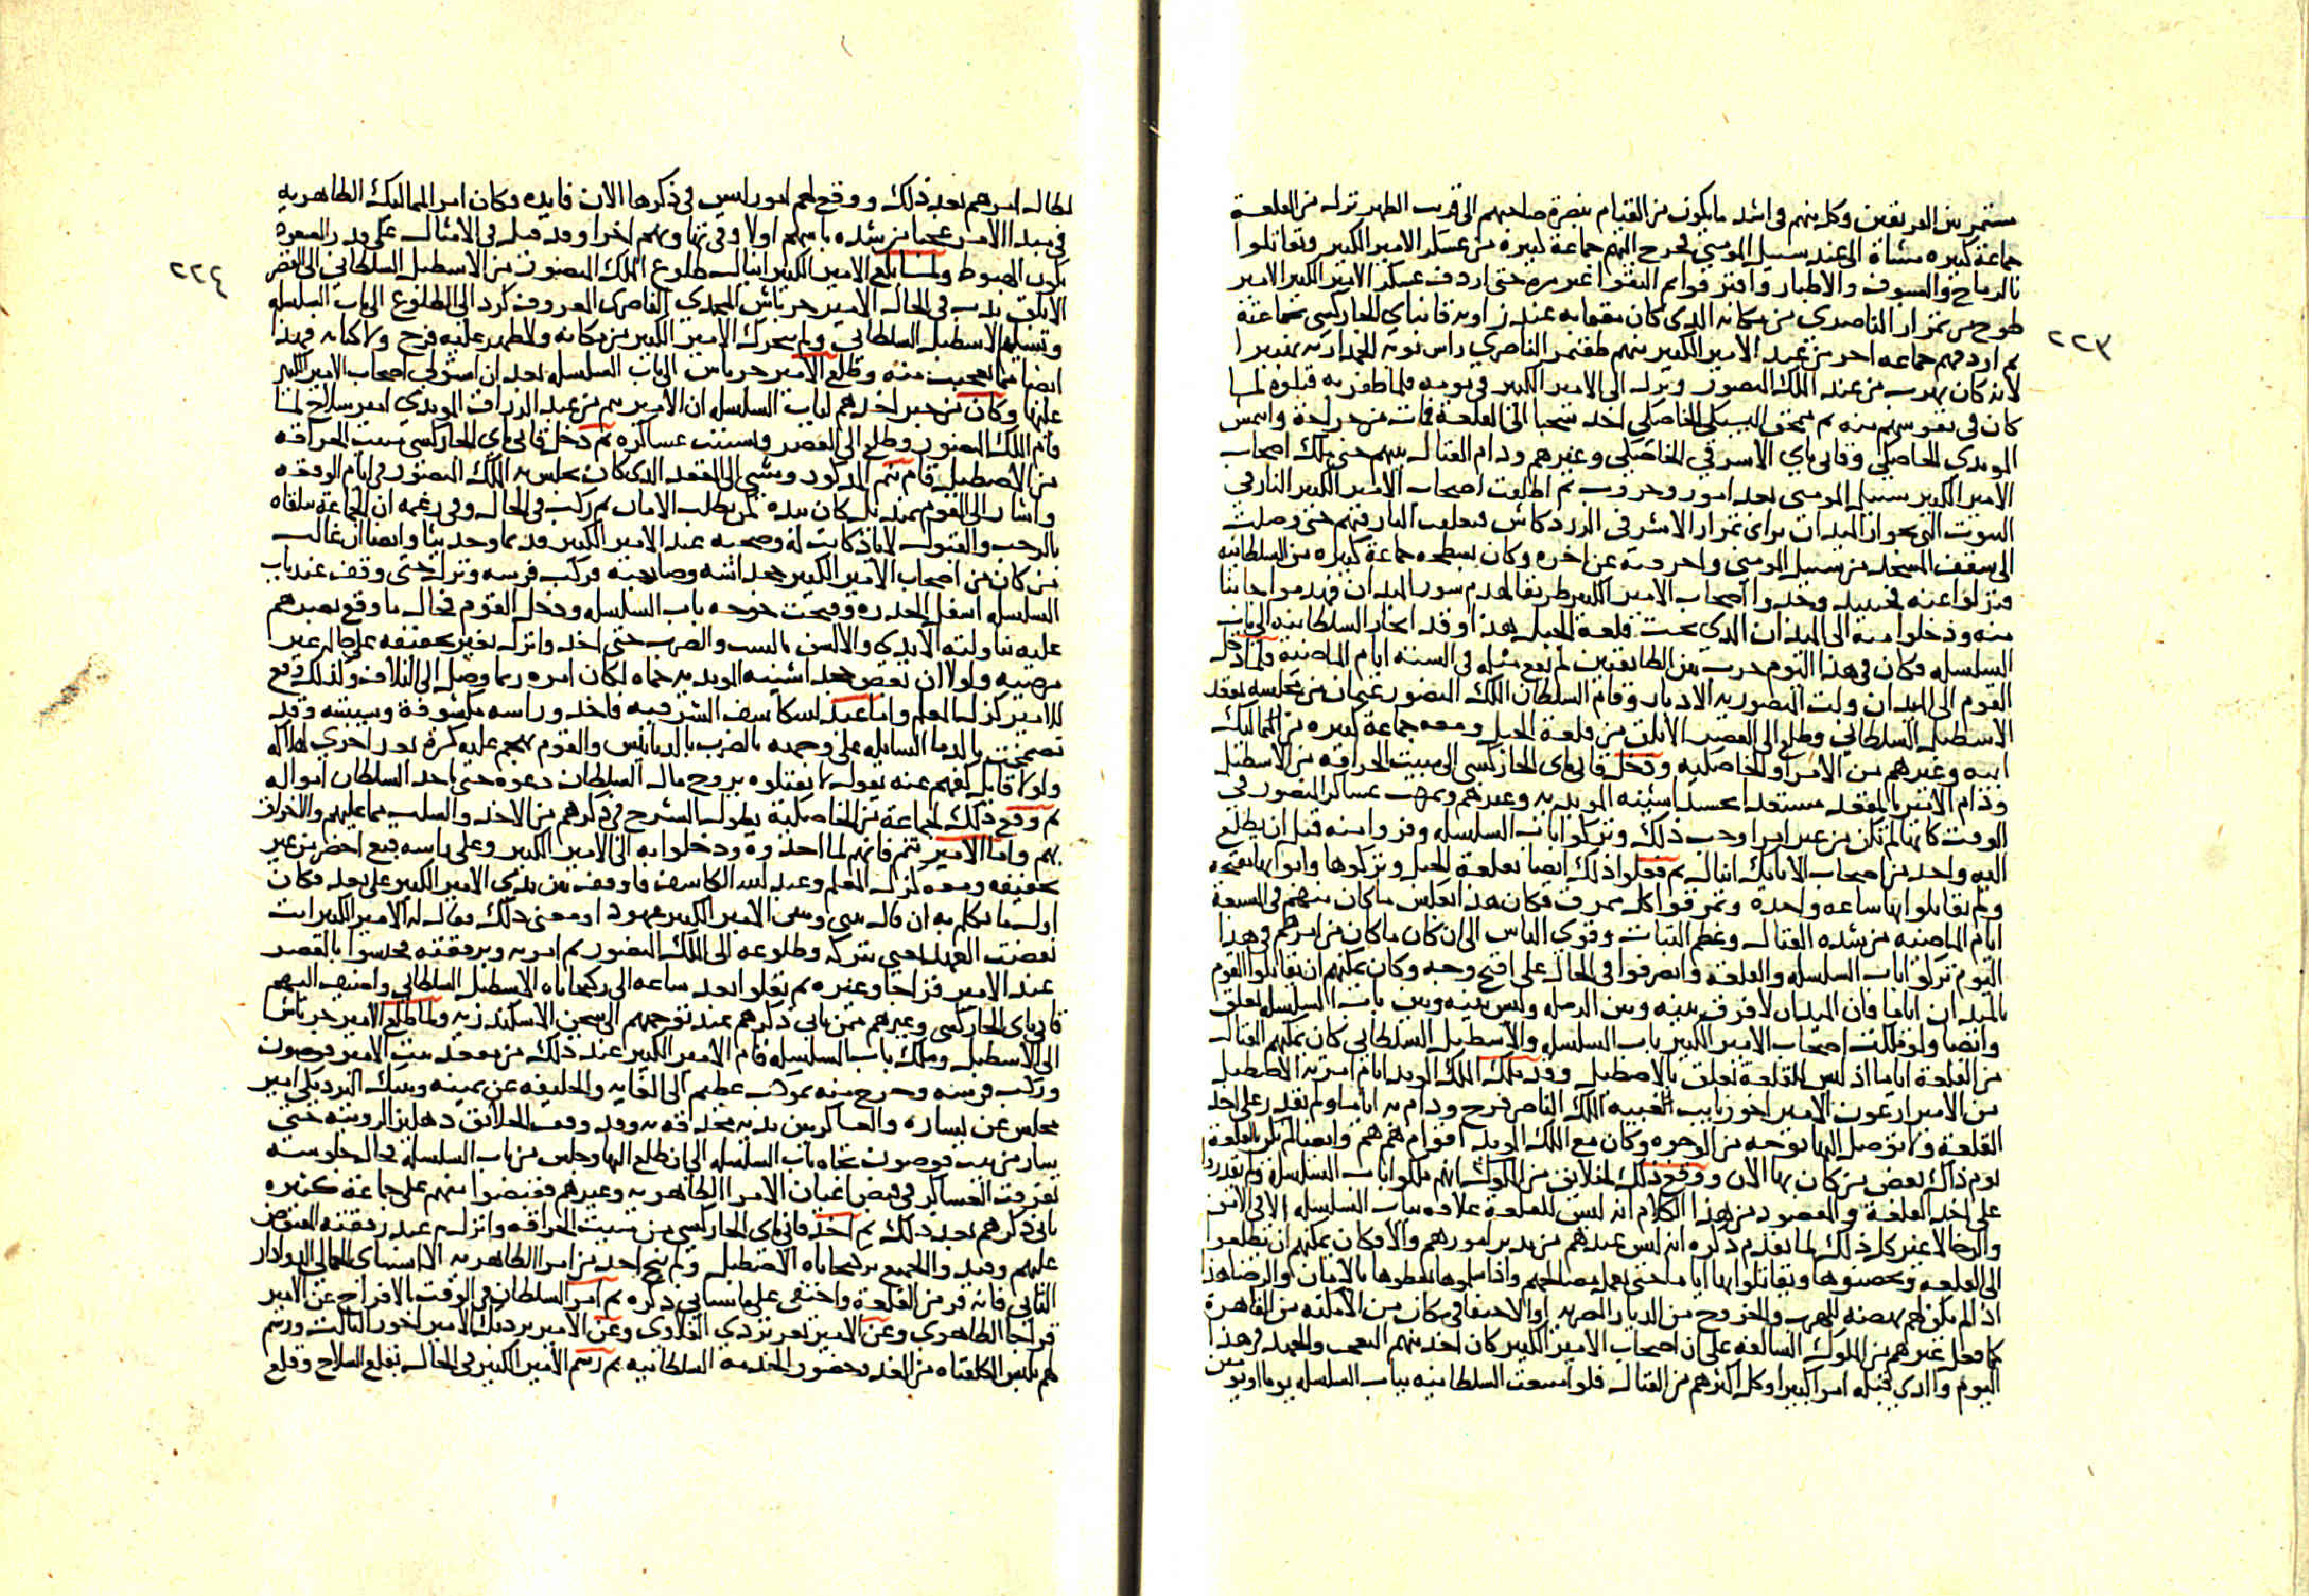 ٢٢٣
مستمر بين الفريقين وكل منهم في اشد ما يكون من القيام بنصرة صاحبهم الى قريب الظهر نزل من القلعة
جماعة كبيره مشاة الى عند سبيل المومني فخرج اليهم جماعة كبيرة من عسكر الامير الكبير وتقاتلوا
بالرماح والسيوف والاطبار وافترقوا ثم التقوا غير مره حتى اردف عسكر الامير الكبير الامير
طوخ من تمراز الناصري من مكانه الذي كان مقيما به عند زاوية قانباي الجاركسي بجماعته
ثم اردفهم جماعه اخر من عند الامير الكبير منهم طقتمر الناصري راس نوبة الجمدارية
لانه كان يهرب من عند الملك المنصور ونزل الى الامير الكبير في يومه فلما ظفر به قتلوه لما
كان في نفوسهم منه ثم الخاصكي اخذ سحبا الى القلعة فمات من جراحة
المويدي الخاصكي وقاني باي الاشرفي الخاصكي وغيرهم ودام القتال بينهم حتى ملك اصحاب
الامير الكبير سبيل المومني بعد امور وحروب ثم اطلقت اصحاب الامير الكبير النار في
البيوت التي بجوار الميدان براى تمراز الاشرفي الزردكاش فتعلقت النار فيهم حتى وصلت
الى سقف المسجد من سبيل المومني واحرقته عن اخره وكان بسطحه جماعة كبيره من السلطانيه
فنزلوا عنه فحينيد وجدوا اصحاب الامير الكبير طريقا لهدم سور الميدان فهدموا جانبا
منه ودخلوا منه الى الميدان الذي تحت قلعة الجبل هذا وقد انحاز السلطانيه الى باب
السلسله فكان في هذا اليوم حرب بين الطايفتين لم يقع مثله في السبعة ايام الماضية ولما دخل
القوم الى الميدان ولت المنصوريه الادبار وقام السلطان الملك المنصور عثمان من مجلسه بمقعد
الاسطبل السلطاني وطلع الى القصر الابلق من قلعة الجبل ومعه جماعة كبيره من المماليك
ابيه وغيرهم من الامرا والخاصكيه ودخل قاني باي الجاركسي الى مبيت الحراقه من الاسطبل
ودام الامير بالمقعد
الوقت كانها لم تكن من غير امر اوجب ذلك وتركوا باب السلسله وفروا منه قبل ان يطلع
اليه واحد من اصحاب الاتابك اينال ثم فعلوا ذلك ايضا بقلعة الجبل وتركوها وابوابها مفتحه
ولم يقاتلوا بها ساعه واحده وتمزقوا كل ممزق فكان هذا بعكس ما كان منهم في السبعة
ايام الماضيه من شده القتال وعظم الثبات وقوي الباس الى ان كان ما كان من امرهم في هذا
اليوم تركوا باب السلسله والقلعة وانصرفوا في الحال على اقبح وجه وكان يمكنهم ان يقاتلوا القوم
بالميدان اياما فان الميدان لا فرق بينه وبين الرمله وليس بينه وبين باب السلسله تعلق
وايضا ولو ملكت اصحاب الامير الكبير باب السلسله والاسطبل السلطاني كان يمكنهم القتال
من القلعة اياما اذ ليس للقلعة تعلق بالاصطبل وقد ملك الملك المويد ايام امرته الاصطبل
من الامير ارغون الامير اخور نايب الغيبه الملك الناصر فرج ودام به اياما ولم يقدر على اخذ
القلعة ولا توصل اليها بوجه من الوجوه وكان مع الملك المويد اقوام هم هم وايضا لم يكن بالقلعة
يوم ذاك بعض من كان بها الان ووقع ذلك لخلايق من الملوك انهم ملكوا باب السلسله ولم يقدروا
على اخذ القلعة والمقصود من هذا الكلام انه ليس للقلعة علاقه بباب السلسله الا في الامن
والرخا لا غير كل ذلك لما تقدم ذكره انه ليس عندهم من يدبر امورهم والا فكان يمكنهم ان يطلعوا
الى القلعة ويحصنوها ويقاتلوا بها اياما حتى يعمل مصالحهم واذا سلموها يعطوها بالامان والرضا هذا
اذا لم يكن لهم نهضه للهرب والخروج من الديار المصريه او الاختفا في مكان من الامكنه من القاهرة
كما فعل غيرهم من الملوك السالفه على ان اصحاب الامير الكبير كان اخذ منهم التعب والجهد في هذا
اليوم والذي قبله امرا كبيرا وكل اكثرهم من القتال فلو امتنعت السلطانيه بباب السلسله يوما او يومين
٢٢٤
لطال امرهم بعد ذلك ووقع لهم امور ليس في ذكرها الان فايده وكان امر المماليك الظاهريه
في مبدا الامر عجبا من شده باسهم اولا وفي تهاونهم اخرا وقد قيل في الامثال على قدر الصعود
يكون الهبوط ولما بلغ الامير الكبير اينال طلوع الملك المنصور من الاسطبل السلطاني الى القصر
الابلق ندب في الحال الامير جرباش المحمدي الناصري المعروف كرد الى الطلوع الى باب السلسله
وتسلم الاسطبل السلطاني ولم يتحرك الامير الكبير من مكانه ولا ظهر عليه فرح ولا كابه فهذا
ايضا مما اعجبت منه وطلع الامير جرباش الى باب السلسله بعد ان استولى اصحاب الامير الكبير
عليها وكان من خبر اخذهم لباب السلسله ان الامير تنم من عبد الرزاق المويدي امير سلاح لما
قام الملك المنصور وطلع الى القصر وتشتت عساكره ثم دخل قاني باي الجاركسي مبيت الحراقه
من الاصطبل قام تنم المذكور ومشى الى المقعد الذي كان يجلس به الملك المنصور في ايام الوقعه
واشار الى القوم بمنديل كان بيده لمن يطلب الامان ثم ركب في الحال وفي زعمه ان الجماعة تتلقاه
بالرحب والقبول لاياد كانت له وصحبه عند الامير الكبير قديما وحديثا وايضا ان غالب
من كان من اصحاب الامير الكبير خجداشته وصاحبته فركب فرسه ونزل حتى وقف عند باب
السلسله اسفل الحدره وفتحت خوخه باب السلسله ودخل القوم فحال ما وقع بصرهم
عليه تناولته الايدي والالسن بالسب والضرب حتى اخذ وانزل بغير تخفيفه على حاله غير
مرضيه ولولا ان بعض خجداشيته المويديه حماه لكان امره ربما وصل الى التلاف وكذلك وقع
للامير لزال المعلم واما عبد الله كاشف الشرقيه فاخذ وراسه مكشوفة وشيبته وقد
تضمخت بالدما السايله على وجهه بالضرب بالدبابيس والقوم تهجم عليه كرة بعد اخرى لهلاكه
ولولا قايل كفهم عنه بقوله لا تقتلوه يروح مال السلطان دعوه حتى ياخذ السلطان امواله
ثم وقع ذلك لجماعة من الخاصكيه يطول الشرح في ذكرهم من الاخذ والسلب مما عليهم والاخراق
بهم واما الامير تنم فانهم لما اخذوه ودخلوا به الى الامير الكبير وعلى راسه قبع اخضر من غير
تخفيفه ومعه لزال المعلم وعبد الله الكاشف فاوقف بين يدي الامير الكبير على بعد فكان
اول ما تكلم به ان قال بيني وبين الامير الكبير عهود او معنى ذلك فقال له الامير الكبير انت
نقضت العهد يعني بتركه وطلوعه الى الملك المنصور ثم امر به وبرفقته فحبسوا بالقصر
عند الامير قراجا وغيره ثم نقلوا بعد ساعه الى ركبخاناه الاسطبل السلطاني واضيف اليهم
قاني باي الجاركسي وغيرهم ممن ياتي ذكرهم عند توجههم الى سجن الاسكندريه ولما طلع الامير جرباش
الى الاسطبل وملك باب السلسله قام الامير الكبير عند ذلك من مقعد بيت الامير قوصون
وركب فرسه وخرج منه بموكب عظيم الى الغايه والخليفه عن يمينه ويلبك البردبكي امير
مجلس عن يساره والعساكر بين يديه محدقه به وقد وقف الخلايق دهليز الرويته حتى
سار من بيت قوصون تجاه باب السلسله الى ان طلع اليها وجلس من باب السلسله فحال جلوسه
تفرقت العساكر في قبض اعيان الامرا الظاهريه وغيرهم فقبضوا منهم على جماعة كثيره
ياتي ذكرهم بعد ذلك ثم اخذ قاني باي الجاركسي من مبيت الحراقه وانزل عند رفقته المقبوض
عليهم وقيد والجميع بركبخاناه الاصطبل ولم ينج احد من امرا الظاهريه الا اسنباي الجمالي الدوادار
الثاني فانه فر من القلعة واختفى على ما سياتي ذكره ثم امر السلطان في الوقت بالافراج عن الامير
قراجا الظاهري وعن الامير تغري بردي القلاوي وعن الامير بردبك الامير اخور الثالث ورسم
لهم بلبس الكلفتاه من الغد بحضور الخدمه السلطانيه ثم رسم الامير الكبير في الحال بقلع السلاح وقلع